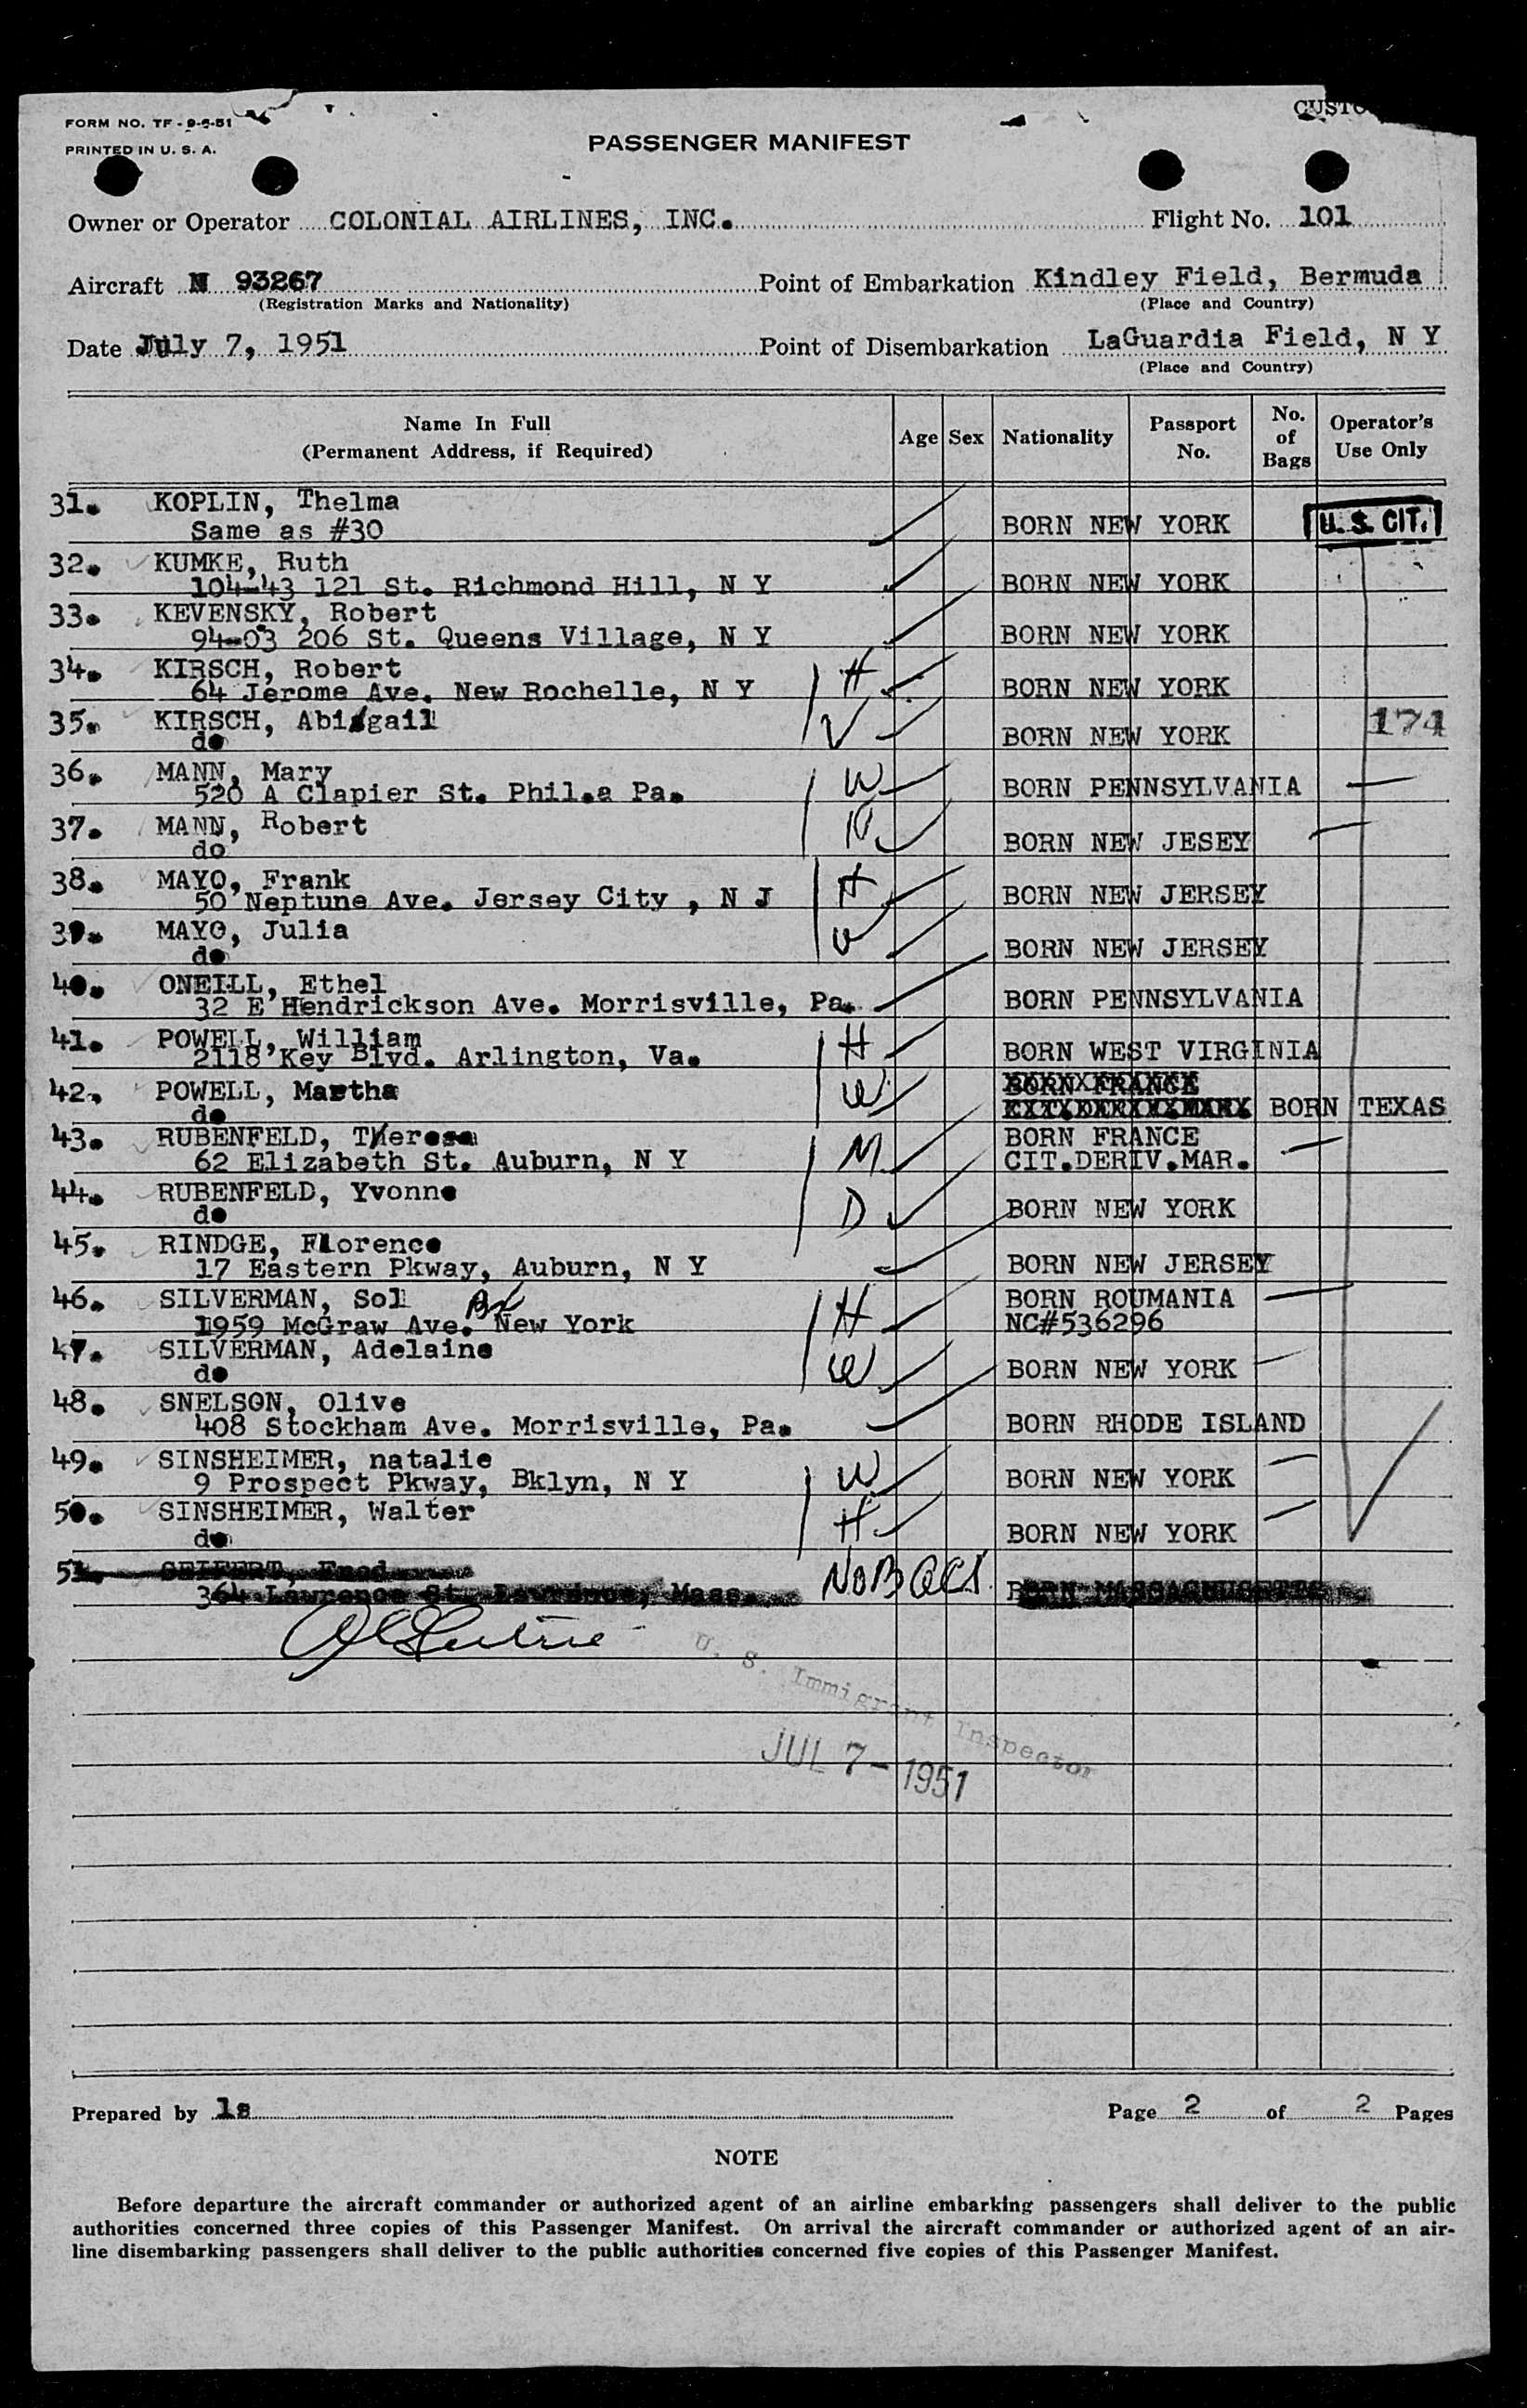 FORM NO. TF - 9-6-51
PRINTED IN U. S. A.
PASSENGER MANIFEST
Owner or Operator COLONIAL AIRLINES, INC. Flight No. 101
Aircraft N 93267 Point of Embarkation Kindley Field, Bermuda
(Registration Marks and Nationality) (Place and Country)
Date July 7, 1951 Point of Disembarkation LaGuardia Field, N Y
(Place and Country)
Name In Full
(Permanent Address, if Required) Age Sex Nationality Passport No. No. of Bags Operator's Use Only
31. KOPLIN, Thelma
Same as #30 BORN NEW YORK U. S. CIT.
32. KUMKE, Ruth
104-43 121 St. Richmond Hill, N Y BORN NEW YORK
33. KEVENSKY, Robert
94-03 206 St. Queens Village, N Y BORN NEW YORK
34. KIRSCH, Robert
64 Jerome Ave. New Rochelle, N Y H BORN NEW YORK
35. KIRSCH, Abigail 174
do BORN NEW YORK
36. MANN, Mary
520 A Clapier St. Phil.a Pa. W BORN PENNSYLVANIA
37. MANN, Robert
do BORN NEW JESEY
38. MAYO, Frank
50 Neptune Ave. Jersey City , N J H BORN NEW JERSEY
39. MAYO, Julia
do BORN NEW JERSEY
40. ONEILL, Ethel
32 E Hendrickson Ave. Morrisville, Pa. BORN PENNSYLVANIA
41. POWELL, William
2118 Key Blvd. Arlington, Va. H BORN WEST VIRGINIA
42. POWELL, Martha W BORN FRANCE
do BORN TEXAS
43. RUBENFELD, Theresa BORN FRANCE
62 Elizabeth St. Auburn, N Y M CIT.DERIV.MAR.
44. RUBENFELD, Yvonne
do D BORN NEW YORK
45. RINDGE, Florence
17 Eastern Pkway, Auburn, N Y BORN NEW JERSEY
46. SILVERMAN, Sol Bx BORN ROUMANIA
1959 McGraw Ave. New York H NC#536296
47. SILVERMAN, Adelaine
do W BORN NEW YORK
48. SNELSON, Olive
408 Stockham Ave. Morrisville, Pa. BORN RHODE ISLAND
49. SINSHEIMER, natalie
9 Prospect Pkway, Bklyn, N Y W BORN NEW YORK
50. SINSHEIMER, Walter
do H BORN NEW YORK
51. SEIFERT,
364 Lawrence St. Lawrence, Mass. BORN MASSACHUSETTS
U. S. Immigrant Inspector
JUL 7 - 1951
Prepared by ls Page 2 of 2 Pages
NOTE
Before departure the aircraft commander or authorized agent of an airline embarking passengers shall deliver to the public
authorities concerned three copies of this Passenger Manifest. On arrival the aircraft commander or authorized agent of an air-
line disembarking passengers shall deliver to the public authorities concerned five copies of this Passenger Manifest.